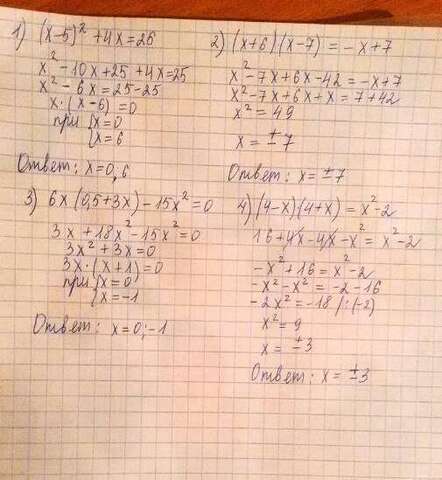 1) (x-5)² + 4x = 25
x² - 10x + 25 + 4x = 25
x² - 6x = 25 - 25
x · (x - 6) = 0
при {x = 0
{x = 6
Ответ: x = 0, 6
2) (x+6)(x-7) = -x+7
x² - 7x + 6x - 42 = -x + 7
x² - 7x + 6x + x = 7 + 42
x² = 49
x = ±7
Ответ: x = ±7
3) 6x(0,5+3x) - 15x² = 0
3x + 18x² - 15x² = 0
3x² + 3x = 0
3x · (x+1) = 0
при {x = 0
{x = -1
Ответ: x = 0; -1
4) (4-x)(4+x) = x² - 2
16 + 4x - 4x - x² = x² - 2
-x² + 16 = x² - 2
-x² - x² = -2 - 16
-2x² = -18 /:(-2)
x² = 9
x = ±3
Ответ: x = ±3